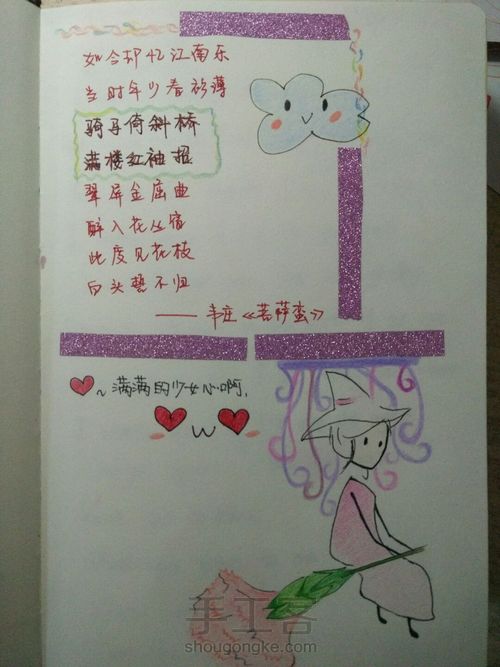 如今却忆江南乐
当时年少春衫薄
骑马倚斜桥
满楼红袖招
翠屏金屈曲
醉入花丛宿
此度见花枝
白头誓不归
——韦庄《菩萨蛮》
~满满的少女心啊.
手工客
shougongke.com